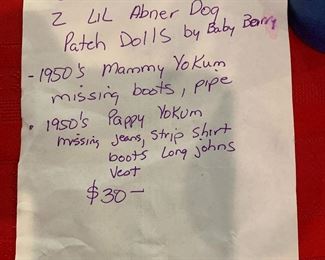 2 LiL Abner Dog
Patch Dolls by Baby Barry
- 1950's Mammy YoKum
missing boots, pipe
• 1950's Pappy YoKum
missing jeans, strip shirt
boots Long johns
Vest
$30-